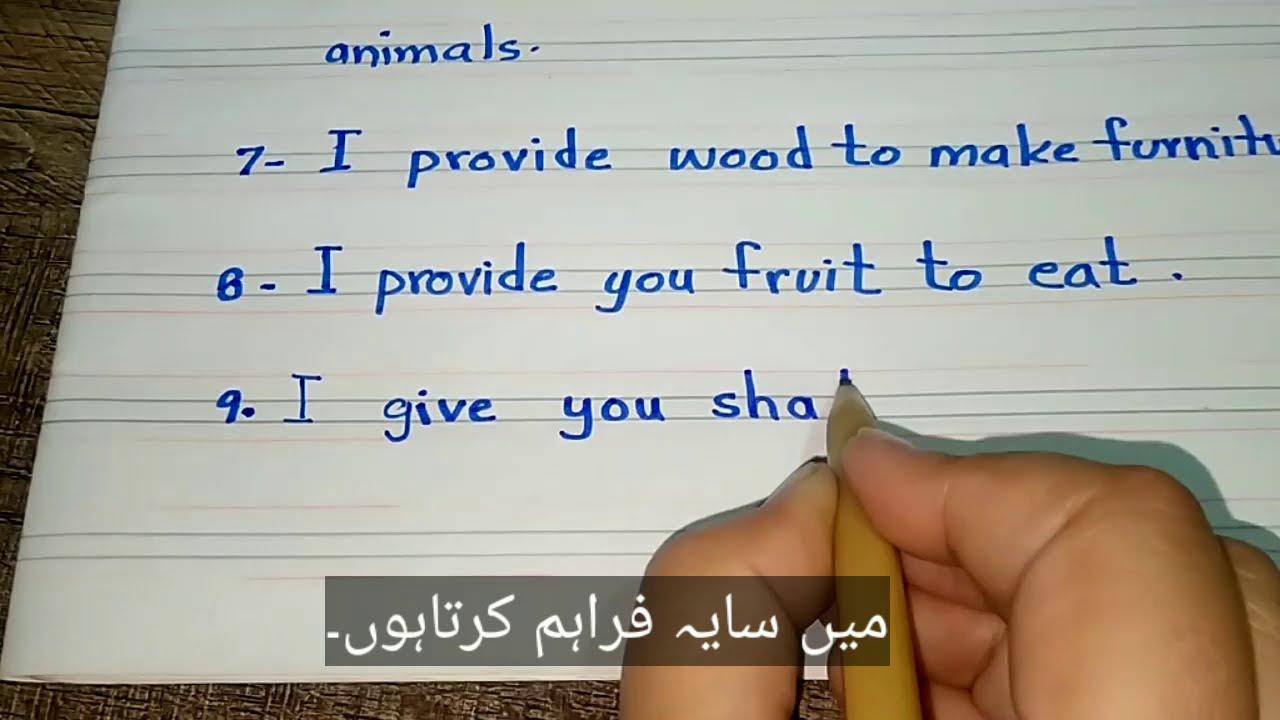 animals.
7- I provide wood to make furnitu
8- I provide you fruit to eat.
9. I give you sha
میں سایہ فراہم کرتاہوں۔